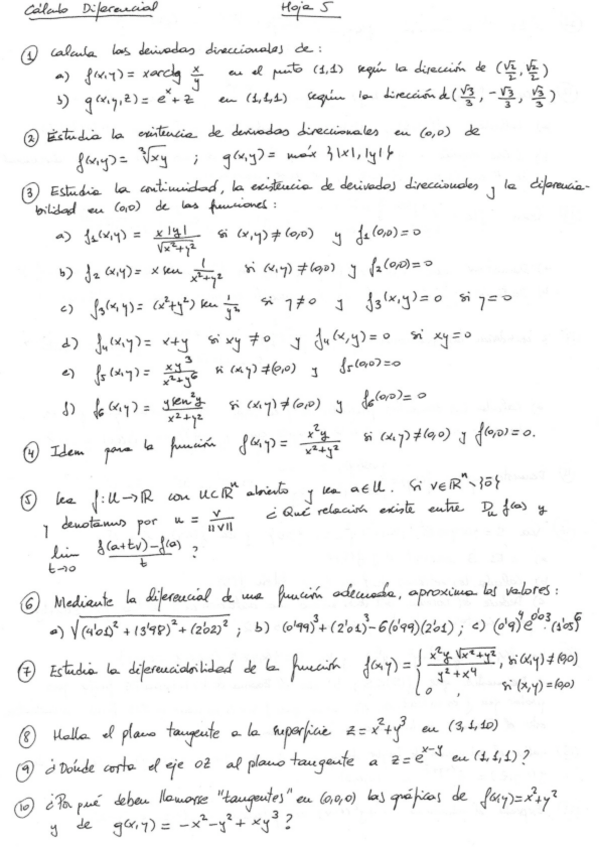 Cálculo Diferencial Hoja 5
① Calcula las derivadas direccionales de:
a) f(x,y) = x arctg x/y en el punto (1,1) según la dirección de (√2/2, √2/2)
b) g(x,y,z) = e^x + z en (1,1,1) según la dirección de (√3/3, -√3/3, √3/3)
② Estudia la existencia de derivadas direccionales en (0,0) de
f(x,y) = ∛xy ; g(x,y) = máx {|x|, |y|}
③ Estudia la continuidad, la existencia de derivadas direccionales y la diferencia-
bilidad en (0,0) de las funciones:
a) f₁(x,y) = x|y|/√(x²+y²) si (x,y) ≠ (0,0) y f₁(0,0) = 0
b) f₂(x,y) = x sen 1/(x²+y²) si (x,y) ≠ (0,0) y f₂(0,0) = 0
c) f₃(x,y) = (x²+y²) sen 1/y² si y ≠ 0 y f₃(x,y) = 0 si y = 0
d) f₄(x,y) = x+y si xy ≠ 0 y f₄(x,y) = 0 si xy = 0
e) f₅(x,y) = xy³/(x²+y⁶) si (x,y) ≠ (0,0) y f₅(0,0) = 0
f) f₆(x,y) = y sen²y/(x²+y²) si (x,y) ≠ (0,0) y f₆(0,0) = 0
④ Idem para la función f(x,y) = x²y/(x²+y²) si (x,y) ≠ (0,0) y f(0,0) = 0.
⑤ Sea f: U → ℝ con U ⊂ ℝⁿ abierto y sea a ∈ U. Si v ∈ ℝⁿ \ {0̄}
y denotamos por u = v/||v|| ¿Qué relación existe entre D_u f(a) y
lim t→0 (f(a+tv) - f(a))/t ?
⑥ Mediante la diferencial de una función adecuada, aproxima los valores:
a) √((4'01)² + (3'98)² + (2'02)²) ; b) (0'99)³ + (2'01)³ - 6(0'99)(2'01) ; c) (0'9)⁴ e^0'03 · (1'05)⁶
⑦ Estudia la diferenciabilidad de la función f(x,y) = { x²y√(x²+y²)/(y²+x⁴), si (x,y) ≠ (0,0)
0 , si (x,y) = (0,0)
⑧ Halla el plano tangente a la superficie z = x² + y³ en (3,1,10)
⑨ ¿Dónde corta el eje OZ al plano tangente a z = e^(x-y) en (1,1,1)?
⑩ ¿Por qué deben llamarse "tangentes" en (0,0,0) las gráficas de f(x,y) = x² + y²
y de g(x,y) = -x² - y² + xy³ ?